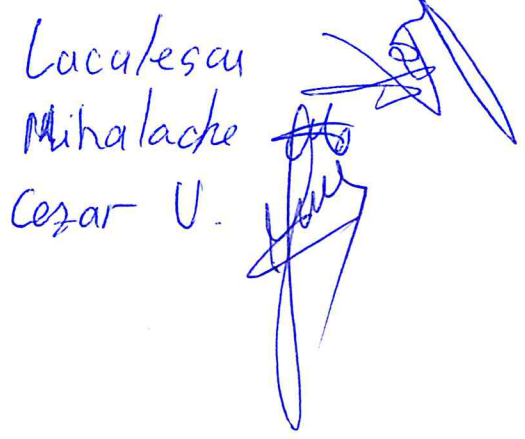 Laculescu
Mihalache
Cezar V.